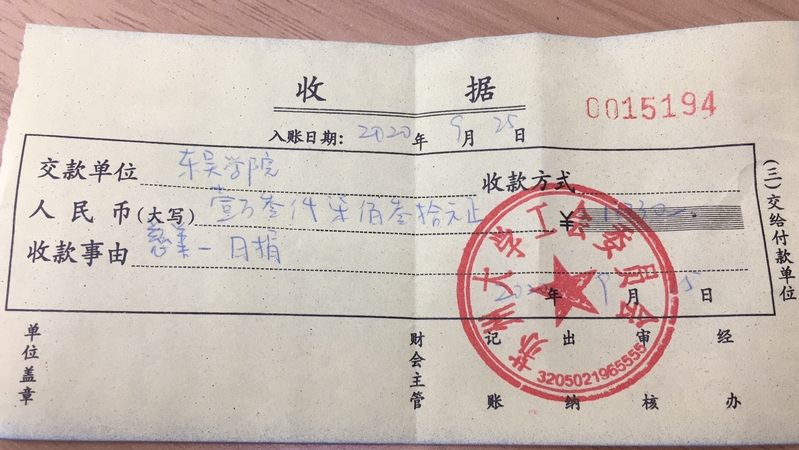 收 据
0015194
入账日期：2020年9月25日
交款单位 东吴学院 收款方式
人民币(大写) 壹万叁仟柒佰叁拾元正
收款事由 慈善一日捐
2020年9月25日
苏州大学工会委员会
3205021965555
(三)交给付款单位
单位盖章 财会主管 记账 出纳 审核 经办